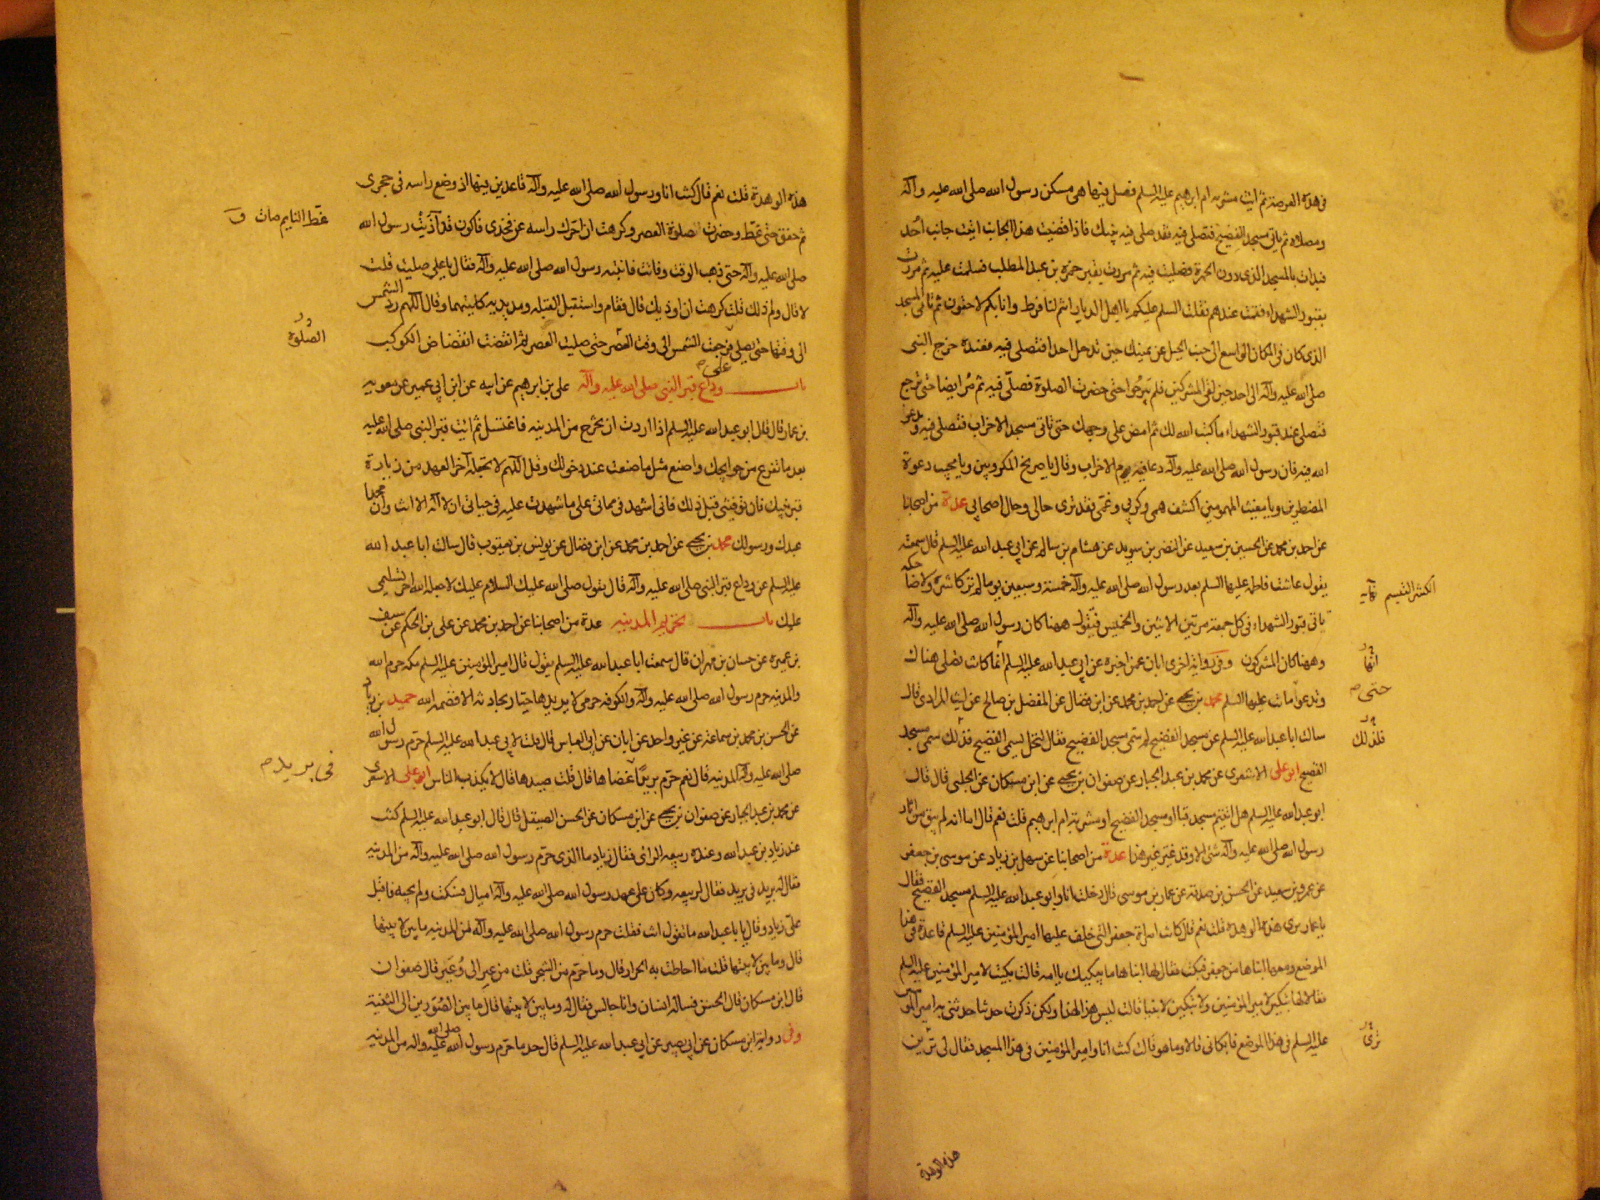 في هذه العرصة ثم ائت مشربة ام ابرهيم عليه السلم فصل فيها هي مسكن رسول الله صلى الله عليه وآله
ومصلاه ثم ياتي مسجد الفضيخ فتصلي فيه فقد صلى فيه نبيك فاذا قضيت هذا الجانب ائيت جانب احد
فبدات بالمسجد الذي دون الحرة فصليت فيه ثم مررت بقبر حمزة بن عبد المطلب فسلمت عليه ثم مررت
بقبور الشهداء فقمت عندهم فقلت السلم عليكم يا اهل الديار انتم لنا فرط وانا بكم لاحقون ثم تاتي المسجد
الذي كان في المكان الواسع الى جنب الجبل عن يمينك حين تدخل احدا فتصلي فيه فعنده خرج النبي
صلى الله عليه وآله الى احد حين لقي المشركين فلم يبرحوا حتى حضرت الصلوة فصلى فيه ثم مر ايضا حتى ترجع
فتصلي عند قبور الشهداء ما كتب الله لك ثم امض على وجهك حتى تاتي مسجد الاحزاب فتصلي فيه وتدعو
الله فيه فان رسول الله صلى الله عليه وآله دعا فيه يوم الاحزاب وقال يا صريخ المكروبين ويا مجيب دعوة
المضطرين ويا مغيث المهمومين اكشف همي وكربي وغمي فقد ترى حالي وحال اصحابي عدة من اصحابنا
عن احمد بن محمد عن الحسين بن سعيد عن النضر بن سويد عن هشام بن سالم عن ابي عبد الله عليه السلم قال سمعته
يقول عاشت فاطمة عليها السلم بعد رسول الله صلى الله عليه وآله خمسة وسبعين يوما لم تر كاشرة ولا ضاحكة
تاتي قبور الشهداء في كل جمعة مرتين الاثنين والخميس فتقول ههنا كان رسول الله صلى الله عليه وآله
وههنا كان المشركون وفي رواية اخرى ابان عمن اخبره عن ابي عبد الله عليه السلم انها كانت تصلي هناك
وتدعو ماتت عليها السلم محمد بن يحيى عن احمد بن محمد عن ابن فضال عن المفضل بن صالح عن ليث المرادي قال
سالت ابا عبد الله عليه السلم عن مسجد الفضيخ لم سمي مسجد الفضيخ فقال لنخل يسمى الفضيخ فلذلك سمي مسجد
الفضيخ ابو علي الاشعري عن محمد بن عبد الجبار عن صفوان بن يحيى عن ابن مسكان عن الحلبي قال قال
ابو عبد الله عليه السلم هل اتيتم مسجد قبا او مسجد الفضيخ او مشربة ام ابرهيم قلت نعم قال اما انه لم يبق من اثار
رسول الله صلى الله عليه وآله شئ الا وقد غير غير هذا عدة من اصحابنا عن سهل بن زياد عن موسى بن جعفر
عن عمرو بن سعيد عن الحسن بن صدقة عن عمار بن موسى قال دخلت انا وابو عبد الله عليه السلم مسجد الفضيخ فقال
يا عمار ترى هذه الوهدة قلت نعم قال كانت امراة جعفر التي خلف عليها امير المؤمنين عليه السلم قاعدة في هذا
الموضع ومعها ابناها من جعفر فبكت فقال لها ابناها ما يبكيك يا امه قالت بكيت لامير المؤمنين عليه السلم
فقالا لها تبكين لامير المؤمنين ولا تبكين لابينا قالت ليس هذا لهذا ولكن ذكرت حديثا حدثني به امير المؤمنين
عليه السلم في هذا الموضع فابكاني قالا وما هو قالت كنت انا وامير المؤمنين في هذا المسجد فقال لي ترين
الكشر التبسم
انها
حتى
فلذلك
هذه الوهدة
هذه الوهدة قلت نعم قال كنت انا ورسول الله صلى الله عليه وآله قاعدين فيها اذ وضع راسه في حجري
ثم خفق حتى غط وحضرت الصلوة العصر وكرهت ان احرك راسه عن فخذي فاكون قد آذيت رسول الله
صلى الله عليه وآله حتى ذهب الوقت وفاتت فانتبه رسول الله صلى الله عليه وآله فقال يا علي صليت قلت
لا قال ولم ذلك قلت كرهت ان اوذيك قال فقام واستقبل القبلة ومد يديه كلتيهما وقال اللهم رد الشمس
الى وقتها حتى يصلي علي فرجعت الشمس الى وقت العصر حتى صليت العصر ثم انقضت انقضاض الكوكب
باب وداع قبر النبي صلى الله عليه وآله علي بن ابرهيم عن ابيه عن ابن ابي عمير عن معوية
بن عمار قال قال ابو عبد الله عليه السلم اذا اردت ان تخرج من المدينة فاغتسل ثم ائت قبر النبي صلى الله عليه
بعد ما تفرغ من حوايجك واصنع مثل ما صنعت عند دخولك وقل اللهم لا تجعله آخر العهد من زيارة
قبر نبيك فان توفيتني قبل ذلك فاني اشهد في مماتي على ما شهدت عليه في حياتي ان لا اله الا انت وان محمدا
عبدك ورسولك محمد بن يحيى عن احمد بن محمد عن ابن فضال عن يونس بن يعقوب قال سالت ابا عبد الله
عليه السلم عن وداع قبر النبي صلى الله عليه وآله قال تقول صلى الله عليك السلام عليك لا جعله الله آخر تسليمي
عليك باب تحريم المدينة عدة من اصحابنا عن احمد بن محمد عن علي بن الحكم عن سيف
بن عميرة عن حسان بن مهران قال سمعت ابا عبد الله عليه السلم يقول قال امير المؤمنين عليه السلم مكة حرم الله
والمدينة حرم رسول الله صلى الله عليه وآله والكوفة حرمي لا يريدها جبار بحادثة الا قصمه الله حميد بن زياد
عن الحسن بن محمد بن سماعة عن غير واحد عن ابان عن ابي العباس قال قلت لابي عبد الله عليه السلم حرم رسول الله
صلى الله عليه وآله المدينة قال نعم حرم بريدا غضاها قال قلت صيدها قال لا يكذب الناس ابو علي الاشعري
عن محمد بن عبد الجبار عن صفوان بن يحيى عن ابن مسكان عن الحسن الصيقل قال قال ابو عبد الله عليه السلم كنت
عند زياد بن عبد الله وعنده ربيعة الراي فقال زياد ما الذي حرم رسول الله صلى الله عليه وآله من المدينة
فقال له بريد في بريد فقال لربيعة وكان على عهد رسول الله صلى الله عليه وآله اميال فسكت ولم يجبه فاقبل
علي زياد وقال يا ابا عبد الله ما تقول انت فقلت حرم رسول الله صلى الله عليه وآله من المدينة ما بين لابتيها
قال وما بين لابتيها قلت ما احاطت به الحرار قال وما حرم من الشجر قلت من عير الى وعير قال صفوان
قال ابن مسكان قال الحسن فساله انسان وانا جالس فقال له وما بين لابتيها قال ما بين الصورين الى الثنية
وفي رواية ابن مسكان عن ابي بصير عن ابي عبد الله عليه السلم قال حد ما حرم رسول الله صلى الله عليه وآله من المدينة
غط النايم صات ق
الصلوة
في بريد